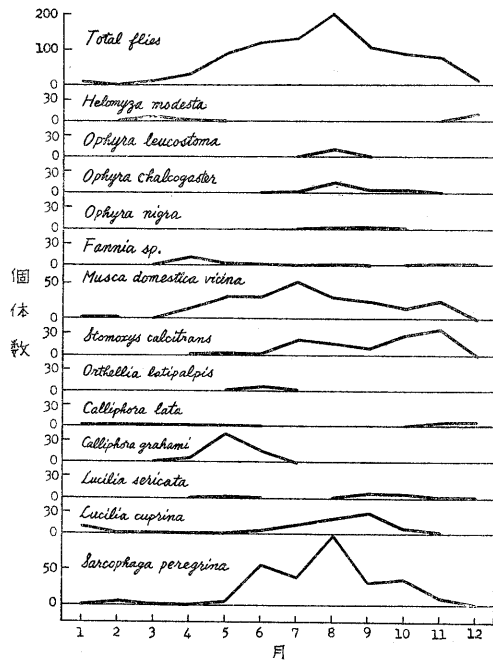 200
Total flies
100
0
30
Helomyza modesta
0
30
Ophyra leucostoma
0
30
Ophyra chalcogaster
0
30
Ophyra nigra
0
30
Fannia sp.
0
Musca domestica vicina
50
0
30
Stomoxys calcitrans
0
30
Orthellia latipalpis
0
30
Calliphora lata
0
30
Calliphora grahami
0
30
Lucilia sericata
0
30
Lucilia cuprina
0
Sarcophaga peregrina
50
0
個体数
1 2 3 4 5 6 7 8 9 10 11 12
月